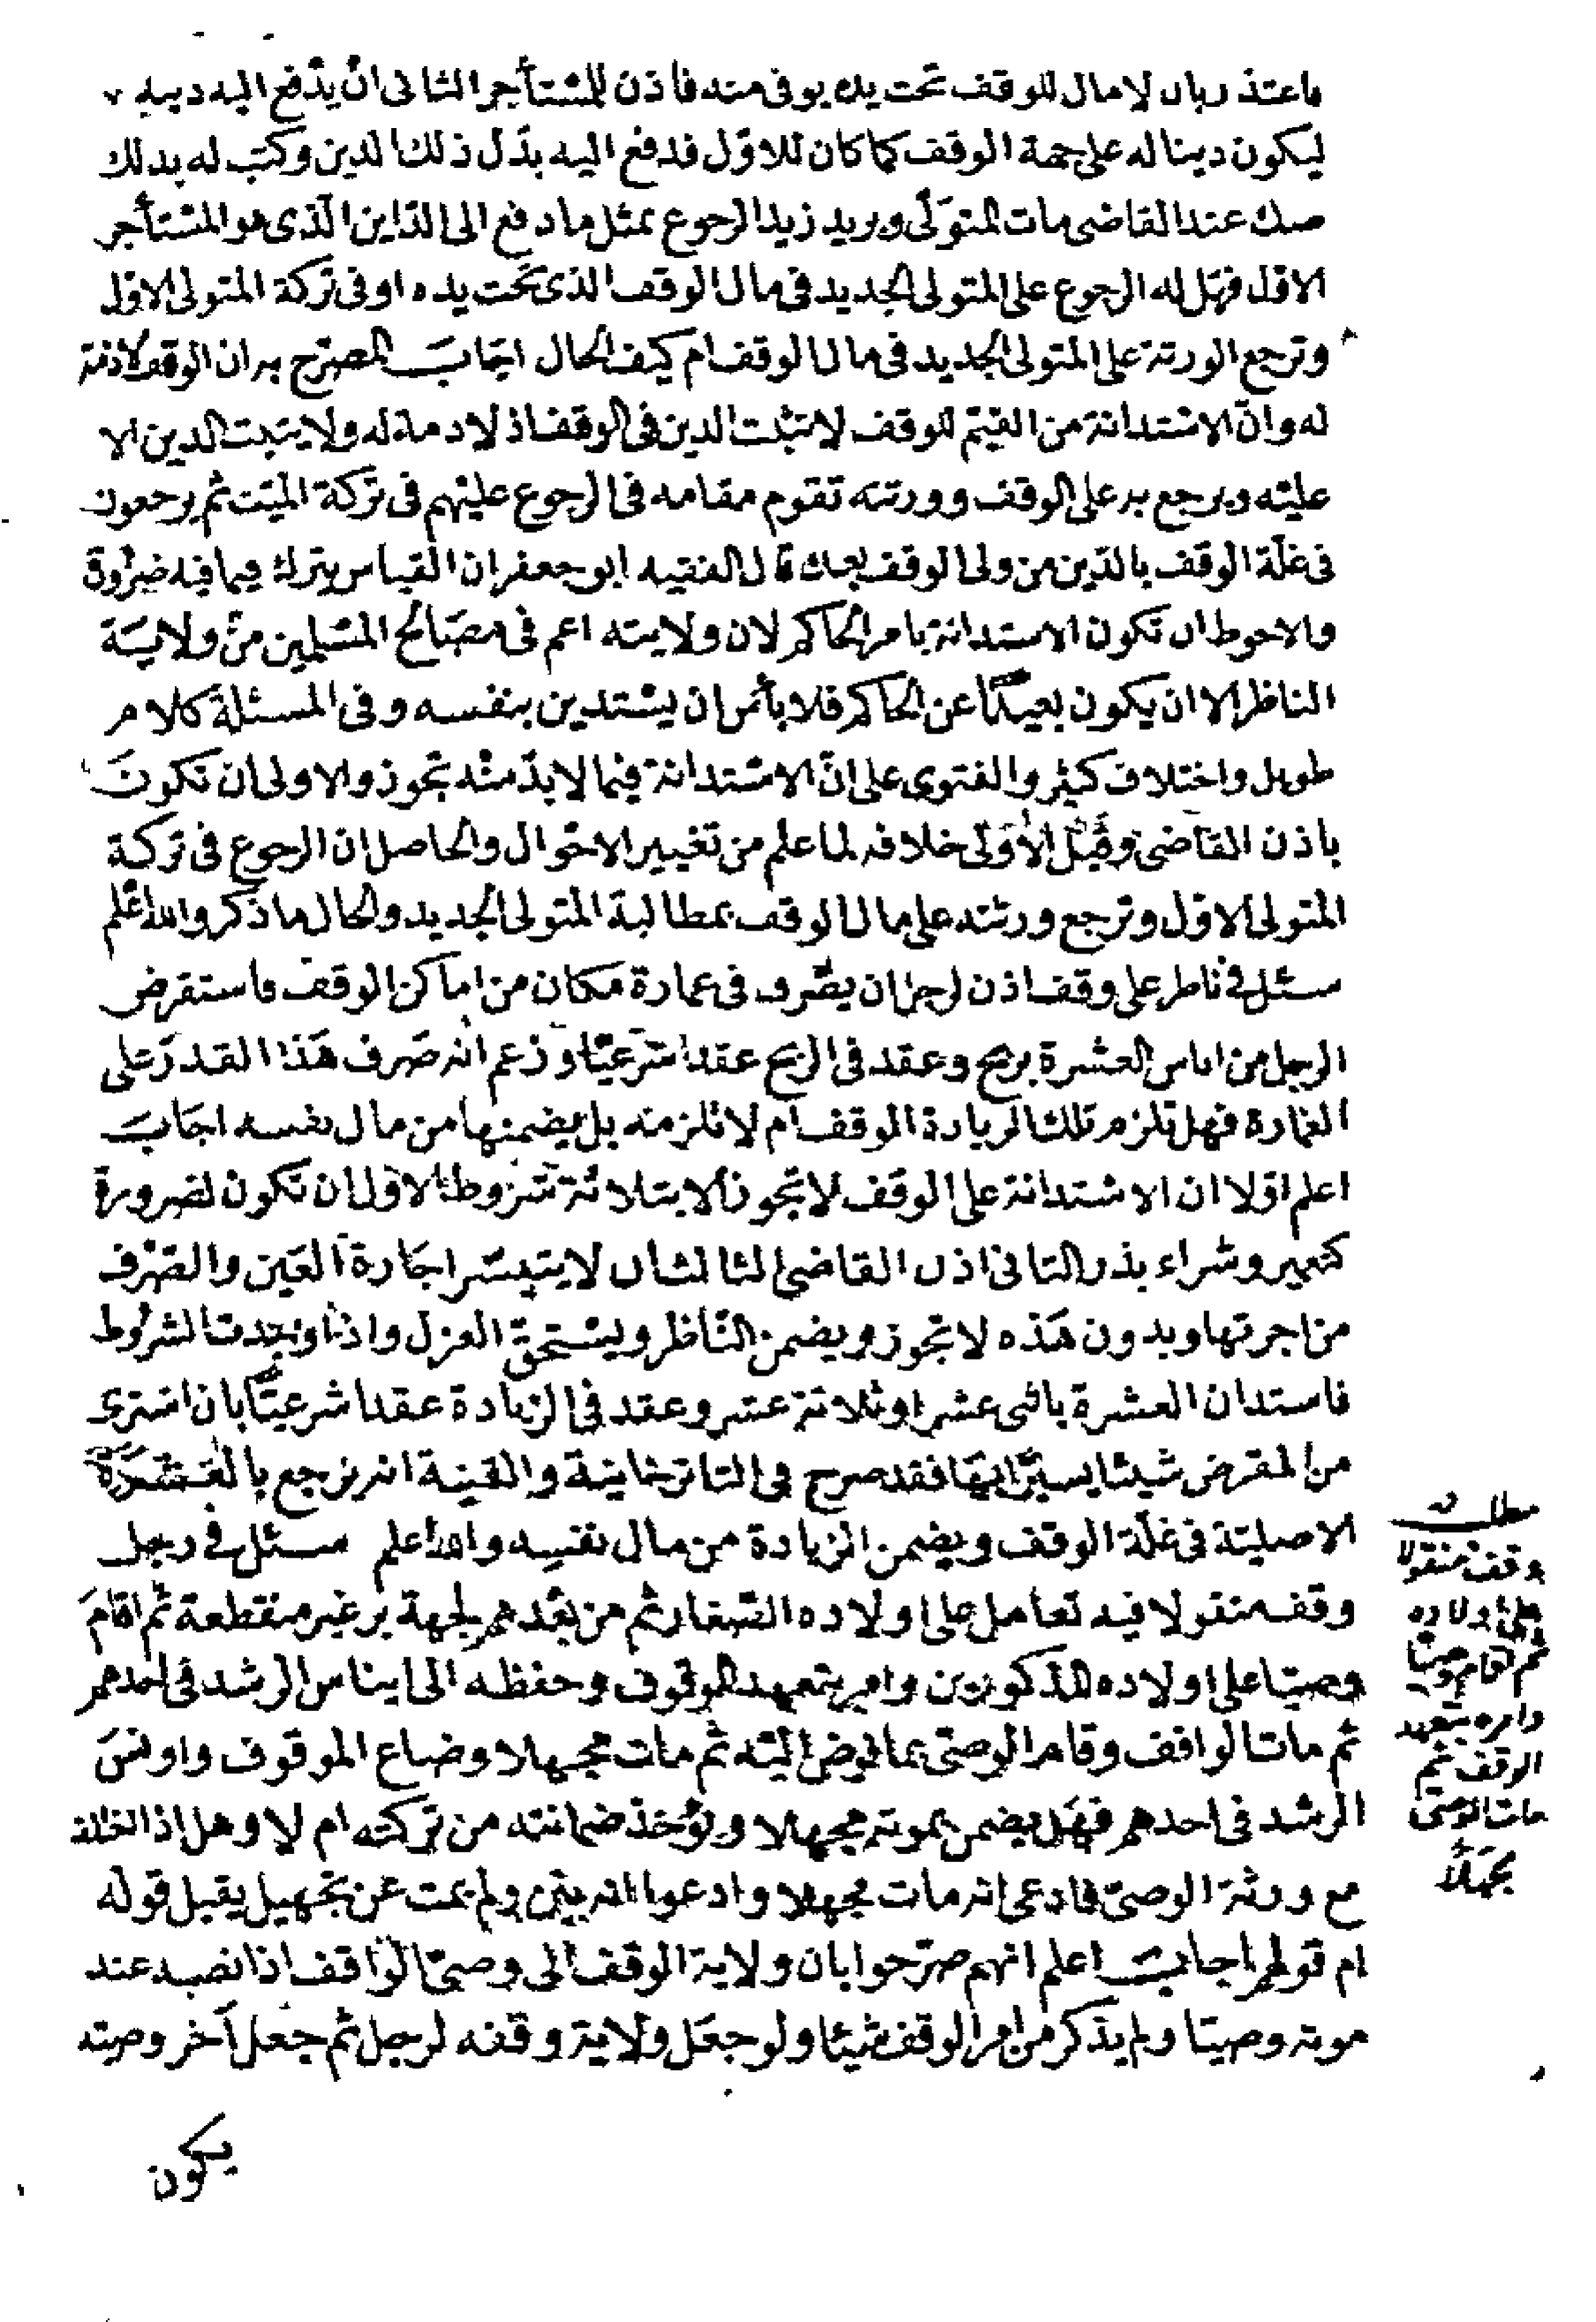 فاعتذر بان لا مال للوقف تحت يده يوفى منه فاذن للمستأجر الثانى ان يدفع اليه دينه
ليكون دينا له على جهة الوقف كما كان للاول فدفع اليه بدل ذلك الدين وكتب له بذلك
صك عند القاضى مات المتولى ويريد زيد الرجوع بمثل ما دفع الى الداين الذى هو المستأجر
الاول فهل له الرجوع على المتولى الجديد فى مال الوقف الذى تحت يده او فى تركة المتولى الاول
وترجع الورثة على المتولى الجديد فى مال الوقف ام كيف الحال اجاب المصرح به ان الوقف لا ذمة
له وان الاستدانة من القيم للوقف لا تثبت الدين فى الوقف اذ لا ذمة له ولا يثبت الدين الا
عليه ويرجع به على الوقف وورثته تقوم مقامه فى الرجوع عليهم فى تركة الميت ثم يرجعون
فى غلة الوقف بالدين من ولى الوقف بعده قال الفقيه ابو جعفر ان القياس يترك فيما فيه ضرورة
والاحوط ان تكون الاستدانة بامر الحاكم لان ولايته اعم فى مصالح المسلمين من ولاية
الناظر الا ان يكون بعيدا عن الحاكم فلا بأس ان يستدين بنفسه وفى المسئلة كلام
طويل واختلاف كثير والفتوى على ان الاستدانة فيما لا بد منه تجوز والاولى ان تكون
باذن القاضى وقيل الاولى خلافه لما علم من تغيير الاحوال والحاصل ان الرجوع فى تركة
المتولى الاول وترجع ورثته على مال الوقف بمطالبة المتولى الجديد والحال ما ذكر والله اعلم
سئل فى ناظر على وقف اذن لرجل ان يصرف فى عمارة مكان من اماكن الوقف فاستقرض
الرجل من اناس العشرة بربح وعقد فى الربح عقدا شرعيا وزعم انه صرف هذا القدر على
العمارة فهل تلزم تلك الزيادة الوقف ام لا تلزمه بل يضمنها من مال نفسه اجاب
اعلم اولا ان الاستدانة على الوقف لا تجوز الا بثلاثة شروط الاول ان تكون لضرورة
كتعمير وشراء بذر الثانى اذن القاضى الثالث ان لا يتيسر اجارة العين والصرف
من اجرتها وبدون هذه لا تجوز ويضمن الناظر ويستحق العزل واذا وجدت الشروط
فاستدان العشرة باثنى عشر او ثلاثة عشر وعقد فى الزيادة عقدا شرعيا بان اشترى
من المقرض شيئا يسيرا بها فقد صرح فى التاترخانية والقنية انه يرجع بالعشرة
الاصلية فى غلة الوقف ويضمن الزيادة من مال نفسه والله اعلم سئل فى رجل
وقف منقولا فيه تعامل على اولاده الصغار ثم من بعدهم لجهة بر غير منقطعة ثم اقام
وصيا على اولاده المذكورين وامر بتعهد الموقوف وحفظه الى ايناس الرشد فى احدهم
ثم مات الواقف وقام الوصى بما فوض اليه ثم مات مجهلا وضاع الموقوف واونس
الرشد فى احدهم فهل يضمن بموته مجهلا ويؤخذ ضمانته من تركته ام لا وهل اذا اختلف
مع ورثة الوصى فادعى انه مات مجهلا وادعوا انه بين ولم يمت عن تجهيل يقبل قوله
ام قولهم اجاب اعلم انهم صرحوا بان ولاية الوقف الى وصى الواقف اذا نصبه عند
موته وصيا ولم يذكر من امر الوقف شيئا ولو جعل ولاية وقفه لرجل ثم جعل آخر وصيه
يكون
مطلب
وقف منقولا
على اولاده
ثم اقام وصيا
وامره بتعهد
الوقف ثم
مات الوصى
مجهلا